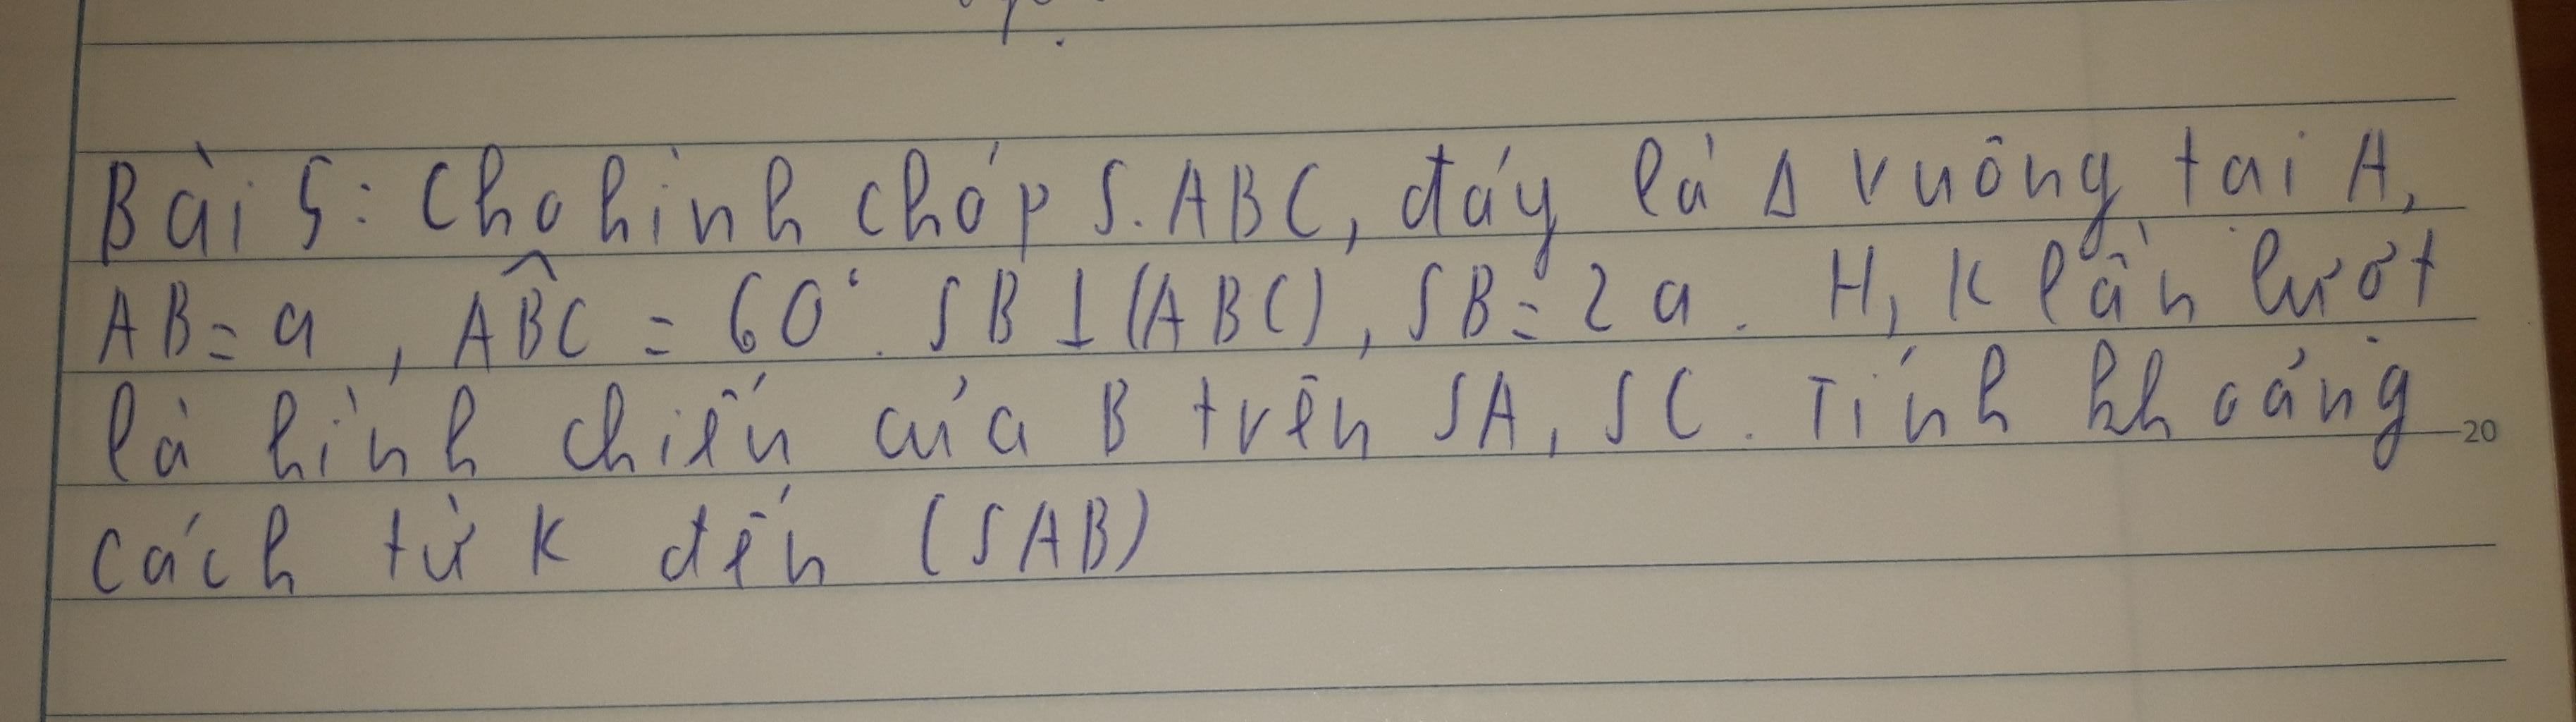 Bài 5: Cho hình chóp S.ABC, đáy là Δ vuông tại A,
AB = a, \widehat{ABC} = 60°. SB ⊥ (ABC), SB = 2a. H, K lần lượt
là hình chiếu của B trên SA, SC. Tính khoảng
cách từ K đến (SAB)
20